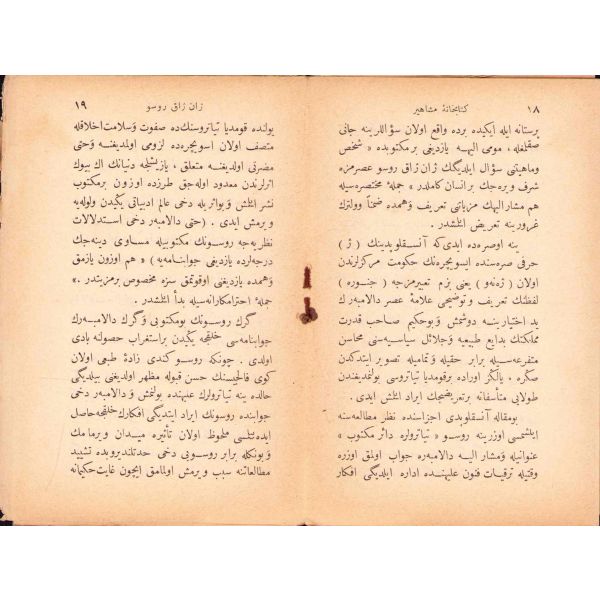 ١٨ كتابخانهٔ مشاهير
پرستانه ايله ايكيده برده واقع اولان سؤاللرينه جانى
صقلمغله ، مومى اليهه يازديغى برمكتوبده « شخص
وماهيتنى سؤال ايلديكك ژان ژاق روسو عصرمزه
شرف ويره جك برانسان كاملدر » جملهٔ مختصره سيله
هم مشاراليهك مزياتنى تعريف وهمده ضمناً وولترك
غرورينه تعريض ايتمشدر .
ينه اوصره ده ايدى كه آنسقلوپديـنك ( ژ )
حرفى صره سنده ايسويچره نك حكومت مركزلرندن
اولان ( ژه نه و ) يعنى بزم تعبيرمزجه ( جنوره )
لفظنك تعريف و توضيحى علامهٔ عصر دالامبه رك
يد اختيارينه دوشمش وبوحكيم صاحب قدرت
مملكتك بدايع طبيعيه وجلائل سياسيه سنى محاسن
متفرعه سيله برابر حقيله و تماميله تصوير ايتدكدن
صكره ، يالكز اوراده برقومديا تياتروسى بولنمديغندن
طولايى متأسفانه برتعريضجك ايراد ايتمش ايدى .
بومقاله آنسقلوپدى اجزاسنده نظر مطالعه سنه
ايلشمسى اوزرينه روسو « تياترولره دائر مكتوب »
عنوانيله ومشار اليه دالامبه ره جواب اولمق اوزره
وقتيله ترقيات فنون عليهنده اداره ايلديكى افكار
ژان ژاق روسو ١٩
يولنده قومديا تياتروسنك ده صفوت وسلامت اخلاقله
متصف اولان اسويچره ده لزومى اولمديغنه وحتى
مضرتى اولديغنه متعلق ، يازيلمجه دنيانك اك بيوك
اثرلرندن معدود اوله جق طرزده اوزون برمكتوب
نشر ايتمش وبواثريله دخى عالم ادبياتى يكيدن ولوله يه
ويرمش ايدى . (حتى دالامبه ر دخى استدلالات
نظريه جه روسونك مكتوبيله مساوى دينه جك
درجه لرده يازديغى جوابنامه يه ) « هم اوزون يازمق
وهمده يازديغنى اوقوتمق سزه مخصوص برمزيتدر . »
جملهٔ احترامكارانه سيله بدأ ايتمشدر .
گرك روسونك بومكتوبى وگرك دالامبه رك
جوابنامه سى خلقجه يكيدن براستغراب حصولنه بادى
اولدى . چونكه روسو كندى زادهٔ طبعى اولان
كوى فالجيسنك حسن قبوله مظهر اولديغنى بيلديكى
حالده ينه تياترولرك عليهنده بولنمش ودالامبه ر دخى
جوابنده روسونك ايراد ايتديكى افكارك خلقجه حاصل
ايده بيلمسى ملحوظ اولان تأثيره ميدان ويرمامك
وبونكله برابر روسويى دخى حدتلنديروبده تشييد
مطالعاتنه سبب ويرمش اولمامق ايچون غايت حكيمانه